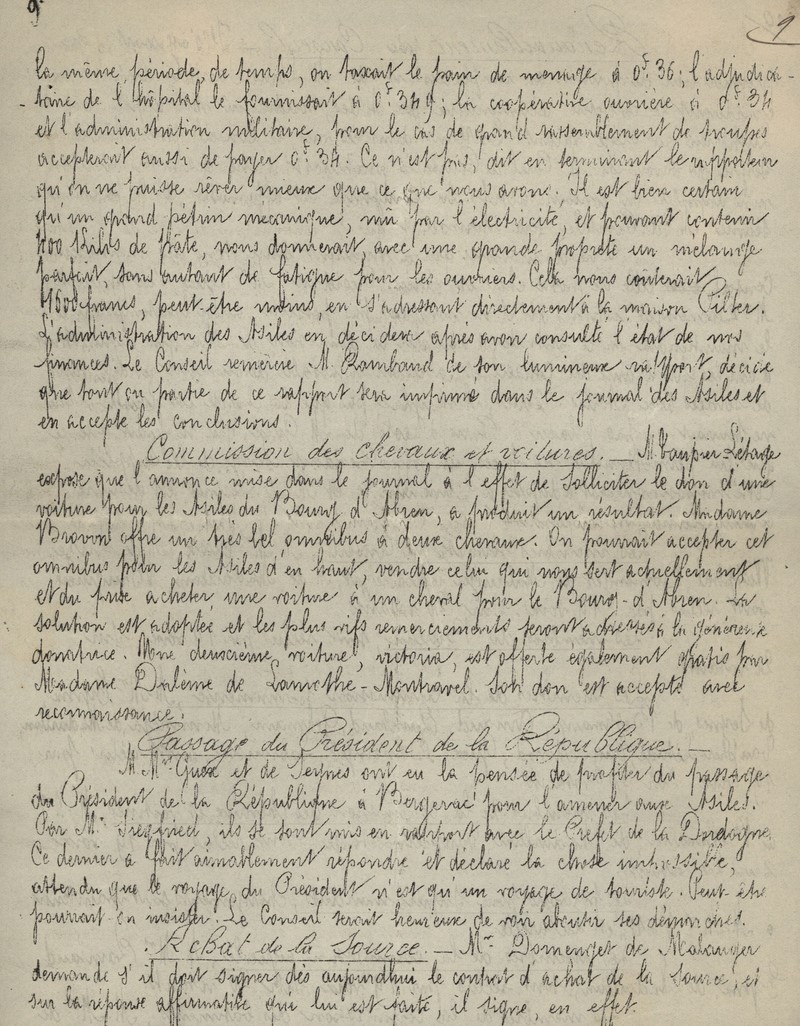 9
la même période de temps, on taxait le pain de menage à 0f.36; l'adjudica-
taire de l'hôpital le fournissait à 0f.349; la coopérative ouvrière à 0f.34
et l'administration militaire, pour le cas de grand rassemblement de troupes
accepterait aussi de payer 0f.34. Ce n'est pas, dit en terminant le rapporteur
qu'on ne puisse rêver mieux que ce que nous avons. Il est bien certain
qu'un grand pétrin mécanique, mû par l'électricité, et pouvant contenir
400 kilos de pâte, nous donnerait, avec une grande propreté un mélange
parfait, sans autant de fatigue pour les ouvriers. Cela nous couterait
1600 francs, peut-être moins, en s'adressant directement à la maison Pilter.
L'administration des Asiles en décidera après avoir consulté l'état de nos
finances. Le Conseil remercie M. Rambaud de son lumineux rapport, décide
que tout ou partie de ce rapport sera imprimé dans le journal des Asiles et
en accepte les conclusions.
Commission des chevaux et voitures. — M.
expose que l'annonce mise dans le journal à l'effet de solliciter le don d'une
voiture pour les Asiles du Bourg d'Abren, a produit un résultat. Madame
Brown offre un très bel omnibus à deux chevaux. On pourrait accepter cet
omnibus pour les Asiles d'en haut, vendre celui qui nous sert actuellement
et du prix acheter une voiture à un cheval pour le Bourg-d'Abren. La
solution est adoptée et les plus vifs remerciements seront adressés à la généreuse
donatrice. Une deuxième voiture, victoria, est offerte également gratis par
Madame Dulème de Lamothe-Montravel. Son don est accepté avec
reconnaissance.
Passage du Président de la République. —
M.Mrs Guex et de Seynes ont eu la pensée de profiter du passage
du Président de la République à Bergerac pour l'amener aux Asiles.
Par Mr Siegfried, ils se sont mis en rapport avec le Préfet de la Dordogne.
Ce dernier a fait aimablement répondre et déclaré la chose impossible,
attendu que le voyage du Président n'est qu'un voyage de touriste. Peut-être
pourrait-on insister. Le Conseil serait heureux de voir aboutir ses démarches.
Achat de la Source. — Mr Domenget de Malauger
demande s'il doit signer dès aujourdhui le contrat d'achat de la source, et
sur la réponse affirmative qui lui est faite, il signe, en effet.